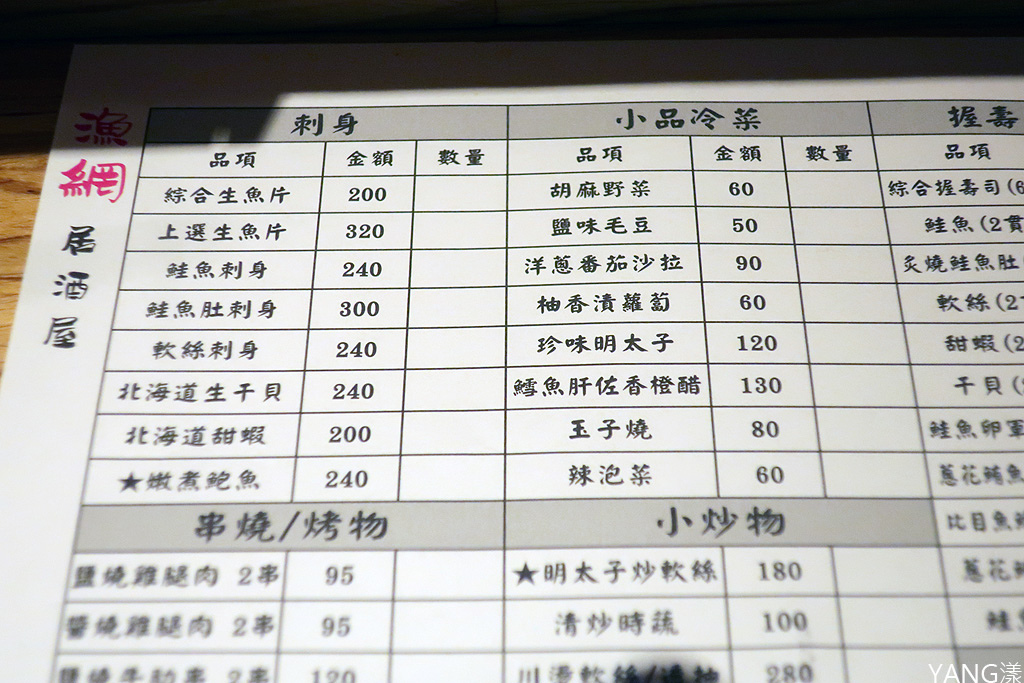 漁網居酒屋
刺身
品項 金額 數量
綜合生魚片 200
上選生魚片 320
鮭魚刺身 240
鮭魚肚刺身 300
軟絲刺身 240
北海道生干貝 240
北海道甜蝦 200
★嫩煮鮑魚 240
串燒/烤物
鹽燒雞腿肉 2串 95
醬燒雞腿肉 2串 95
2串 120
小品冷菜
品項 金額 數量
胡麻野菜 60
鹽味毛豆 50
洋蔥番茄沙拉 90
柚香漬蘿蔔 60
珍味明太子 120
鱈魚肝佐香橙醋 130
玉子燒 80
辣泡菜 60
小炒物
★明太子炒軟絲 180
清炒時蔬 100
川燙軟絲/ 280
握壽
品項
綜合握壽司(6
鮭魚(2貫
炙燒鮭魚肚(
軟絲(2
甜蝦(2
干貝(
鮭魚卵軍
蔥花鮪魚
比目魚鰭
蔥花
鮭
YANG漾